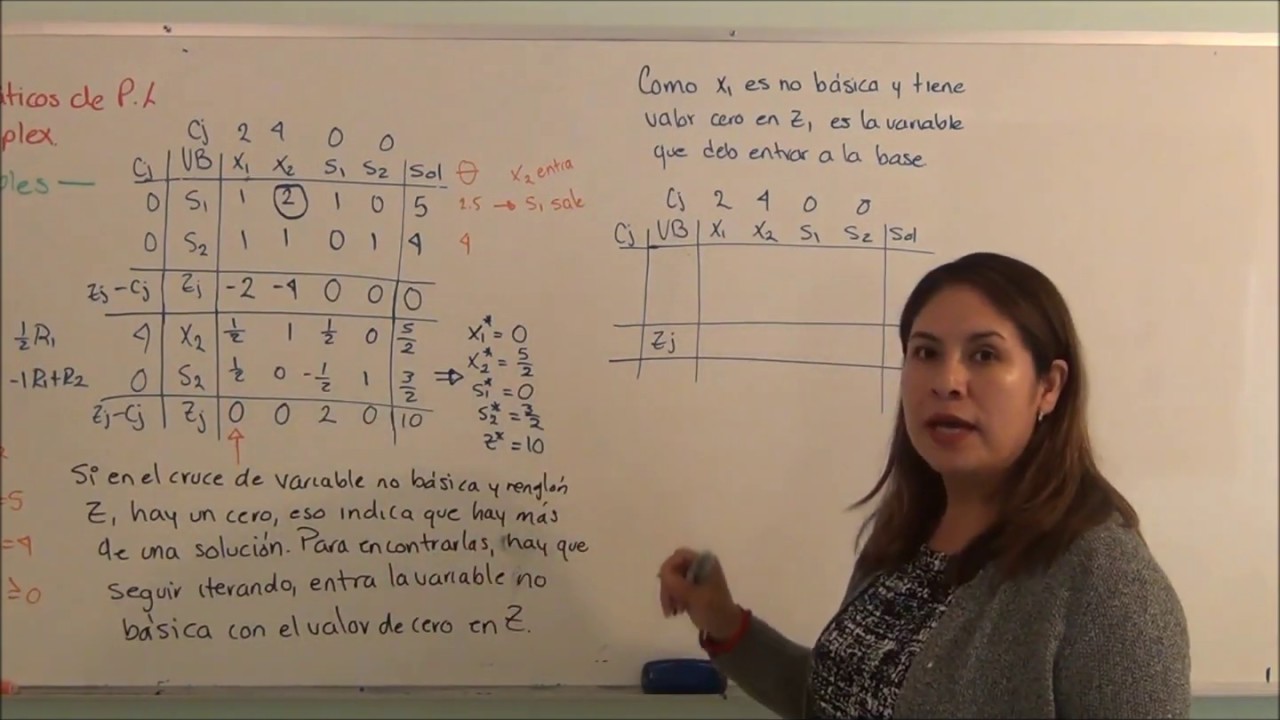 áticos de P.L
plex.
ples —
Cj 2 4 0 0
Cj VB X₁ X₂ S₁ S₂ Sol θ X₂ entra
0 S₁ 1 2 1 0 5 2.5 → S₁ sale
0 S₂ 1 1 0 1 4 4
Zj-Cj Zj -2 -4 0 0 0
½R₁ 4 X₂ ½ 1 ½ 0 5/2
-1R₁+R₂ 0 S₂ ½ 0 -½ 1 3/2 ⇒
Zj-Cj Zj 0 0 2 0 10
X₁* = 0
X₂* = 5/2
S₁* = 0
S₂* = 3/2
Z* = 10
=5
=4
≥0
Si en el cruce de variable no básica y renglón
Z, hay un cero, eso indica que hay más
de una solución. Para encontrarlas, hay que
seguir iterando, entra la variable no
básica con el valor de cero en Z.
Como X₁ es no básica y tiene
valor cero en Z, es la variable
que debo entrar a la base
Cj 2 4 0 0
Cj VB X₁ X₂ S₁ S₂ Sol
Zj